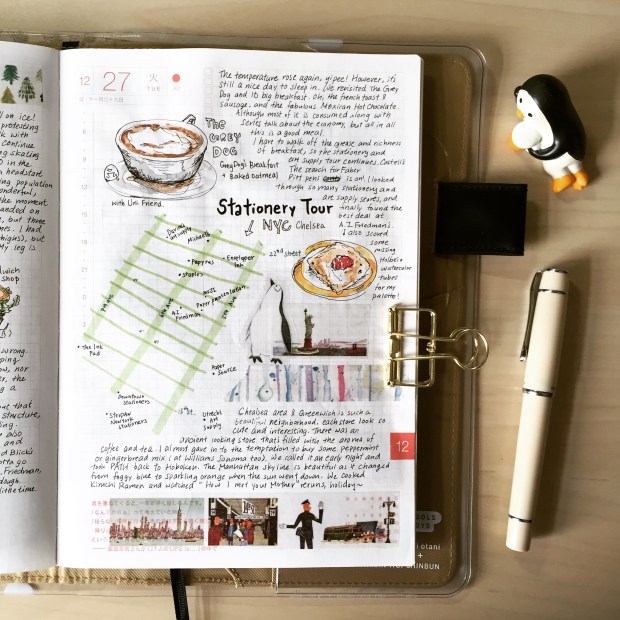 l on ice!
protesting
talk with
continue
ng skating
D in the
n headstart.
ing population
wonderful,
ke the moment
anded on
e, but three
ones. I had
thighs), but
My leg is
dwich
shop
wrong.
ping
ow, nor
er, the
g a
but that
structure,
ling.
also
and
d Blick's
otta go
. Friedman,
dough.
little time.
12
27
火
TUE
The temperature rose again, yipee! However, it's
still a nice day to sleep in. We revisited The Grey
Dog and its big breakfast. Oh, the french toast &
sausage. and the fabulous Mexican Hot Chocolate.
Although most of it is consumed along with
series talk about the economy, but all in all
this is a good meal.
I have to walk off the grease and richness
of breakfast, so the stationery and
art supply tour continues. Castell's
The search for Faber
Pitt pens is on! I looked
through so many stationery and
art supply stores, and
finally found the
best deal at
A.I Friedman!
I also scored
some
missing
Holbein
watercolor
tubes
for my
palette!
THE
GREY
DOG
Grey Dog's Breakfast
+ Baked Oatmeal
with Uni Friend.
Stationery Tour
NYC Chelsea
22nd street
Michaels
Papyrus
Envelope
Inf
Staples
MUJI
Paper presentation
A.I.
Friedman
The Ink
Pad
Paper
Source
Downtown
stationers
Stevdan
New York
stationers
Utrecht
Art
Supply
Chelsea area & Greenwich is such a
beautiful neighborhood. each store look so
cute and interesting. There was an
ancient looking store that filled with the aroma of
coffee and tea. I almost gave in to the temptation to buy some peppermint
or gingerbread mix (at Williams Sonoma too). We called it an early night and
took PATH back to Hoboken. The Manhattan skyline is beautiful as it changed
from foggy blue to sparkling orange when the sun went down. We cooked
Kimchi Ramen and watched "How I met your Mother" reruns, holiday~
12
otani
+
SHINBUN